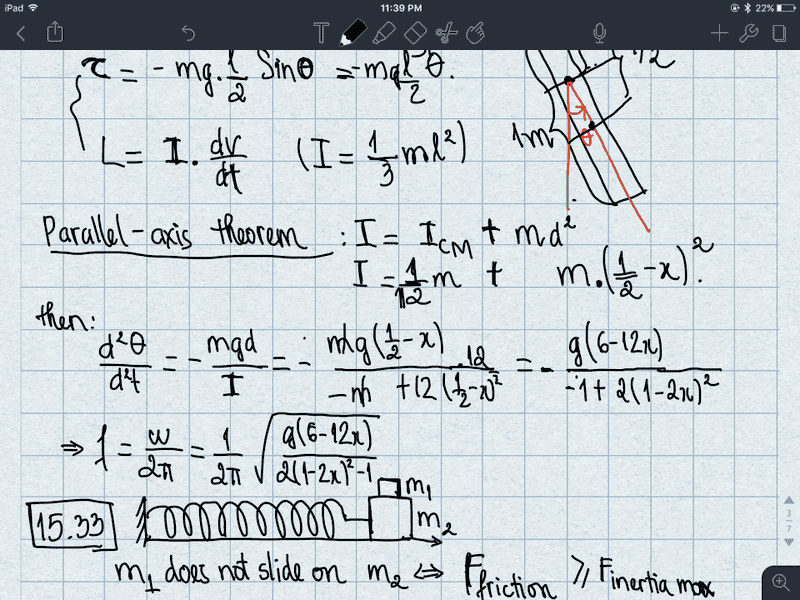 iPad 11:39 PM 22%
τ = - mg. l/2 Sinθ = -mg l/2 θ.
/2
L = I. dv/dt (I = 1/3 ml²)
1m
Parallel-axis theorem : I = I_CM + md²
I = 1/12 m + m.(1/2 -x)².
then:
d²θ/d²t = - mgd/I = - mg(1/2 -x).12 / -m +12(1/2-x)² = - g(6-12x) / -1+ 2(1-2x)²
⇒ f = ω/2π = 1/2π √ g(6-12x) / 2(1-2x)²-1
15.33
m₁
m₂
m₁ does not slide on m₂ ⇔ F friction ⩾ F inertia max
3/7